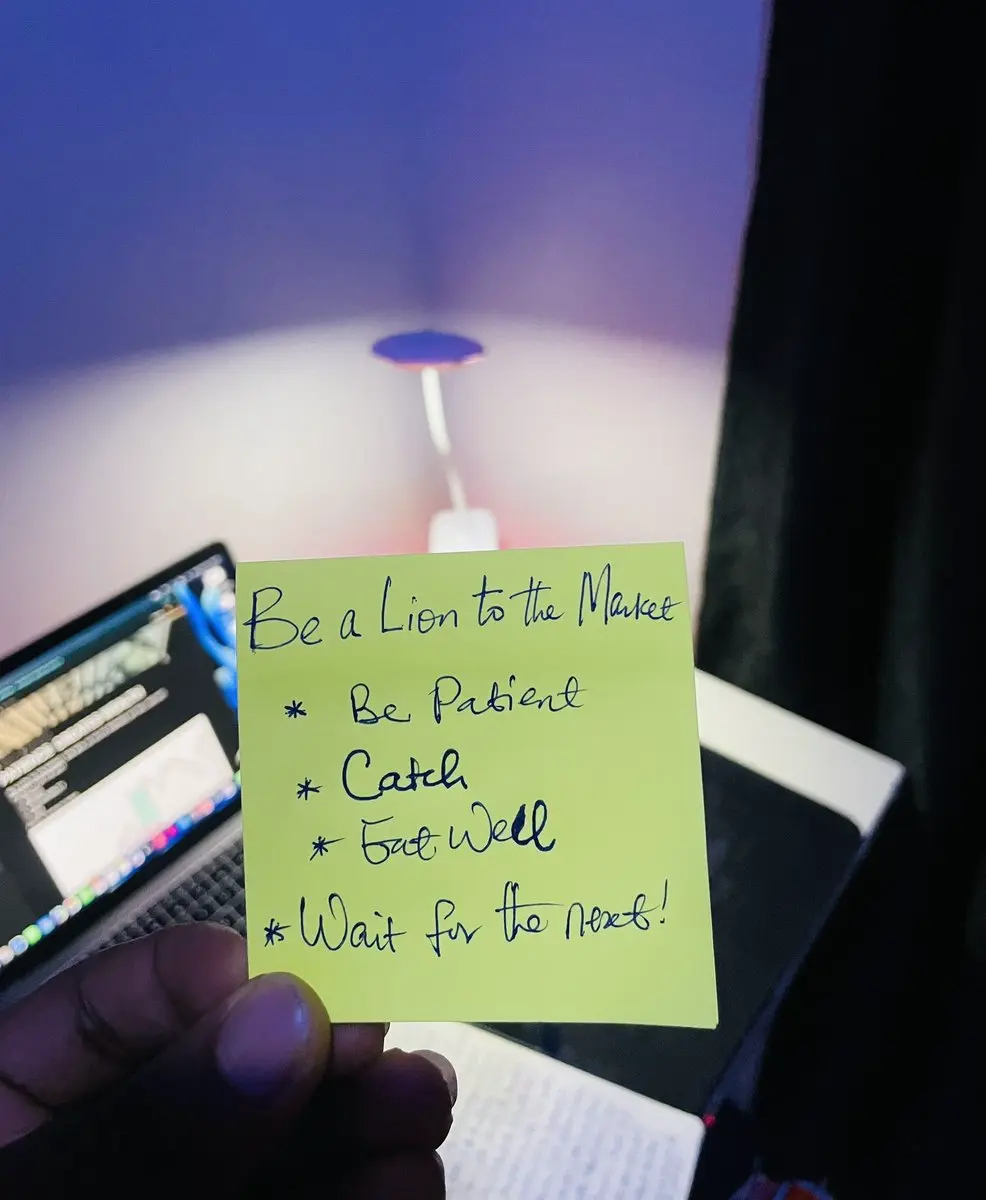 Be a Lion to the Market
* Be Patient
* Catch
* Eat Well
* Wait for the next!